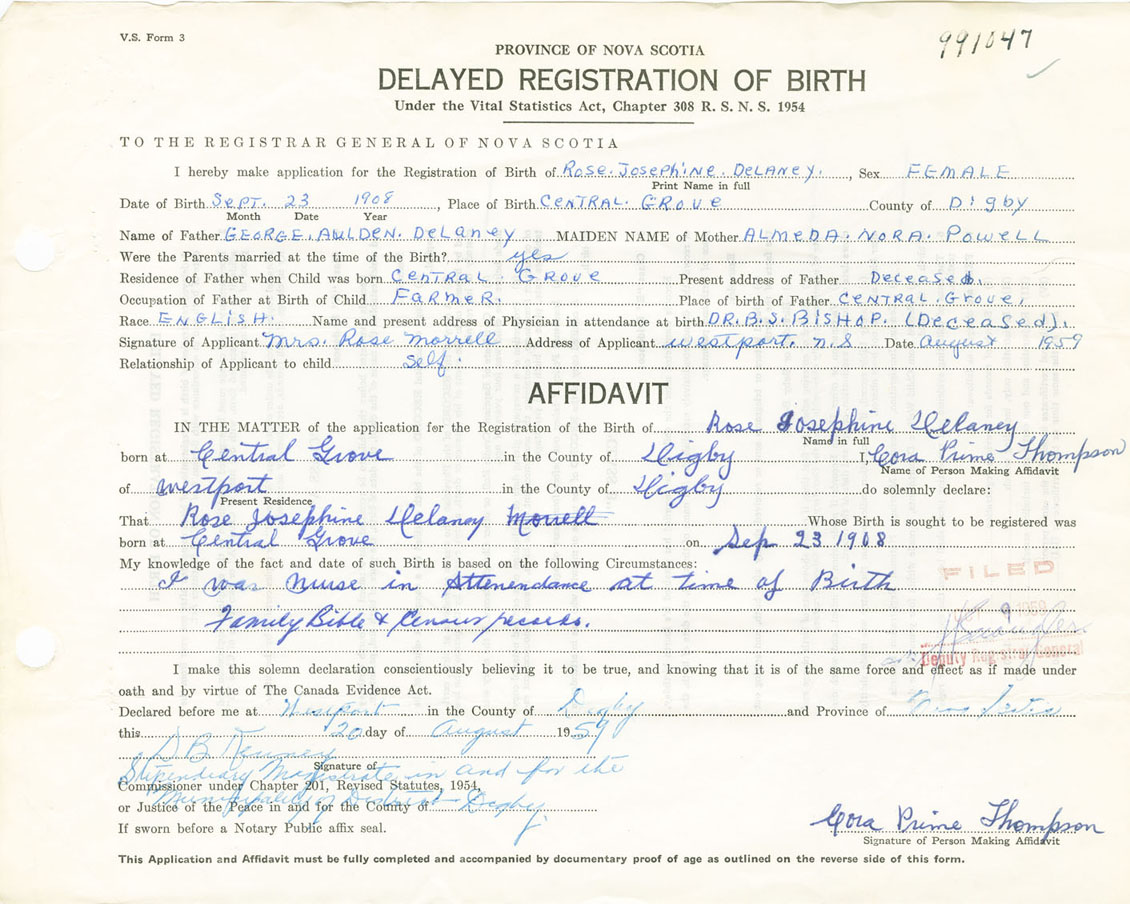 V.S. Form 3
991047
PROVINCE OF NOVA SCOTIA
DELAYED REGISTRATION OF BIRTH
Under the Vital Statistics Act, Chapter 308 R. S. N. S. 1954
TO THE REGISTRAR GENERAL OF NOVA SCOTIA
I hereby make application for the Registration of Birth of Rose. Josephine. DeLaney., Sex FEMALE
Print Name in full
Date of Birth Sept. 23 1908, Place of Birth CENTRAL. GROVE County of Digby
Month Date Year
Name of Father GEORGE. AULDEN. DeLaney MAIDEN NAME of Mother ALMEDA. NORA. POWELL
Were the Parents married at the time of the Birth? yes
Residence of Father when Child was born CENTRAL. GROVE Present address of Father Deceased.
Occupation of Father at Birth of Child FARMER. Place of birth of Father CENTRAL. GROVE.
Race ENGLISH. Name and present address of Physician in attendance at birth DR. B. S. BISHOP. (Deceased).
Signature of Applicant Mrs. Rose Morrell Address of Applicant westport. n.s Date August 1959
Relationship of Applicant to child self.
AFFIDAVIT
IN THE MATTER of the application fer the Registration of the Birth of Rose Josephine Delaney
Name in full
born at Central Grove in the County of Digby I, Cora Prime Thompson
Name of Person Making Affidavit
of westport in the County of Digby do solemnly declare:
Present Residence
That Rose Josephine Delaney Morrell Whose Birth is sought to be registered was
born at Central Grove on Sep 23 1908
My knowledge of the fact and date of such Birth is based on the following Circumstances:
I was nurse in Attenendance at time of Birth
FILED
Family Bible & Census records.
Deputy Registrar General
I make this solemn declaration conscientiously believing it to be true, and knowing that it is of the same force and effect as if made under
oath and by virtue of The Canada Evidence Act.
Declared before me at Westport in the County of Digby and Province of Nova Scotia
this 20 day of August 1959
D B Kenney
Signature of
Stipendiary Magistrate in and for the
Commissioner under Chapter 201, Revised Statutes, 1954,
Municipality of District Digby.
or Justice of the Peace in and for the County of
If sworn before a Notary Public affix seal.
Cora Prime Thompson
Signature of Person Making Affidavit
This Application and Affidavit must be fully completed and accompanied by documentary proof of age as outlined on the reverse side of this form.